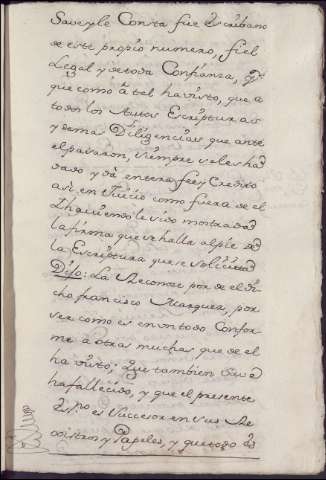 Save, y le Consta fue Escribano
de este propio numero, fiel
Legal y de toda Confianza, y
que como â tal ha visto, que a
todos los Autos Escripturas
y demas Diligencias que ante
el pasaron, siempre seles ha
dado y dà entera fee y Credito
asi en Juicio como fuera de el
Y haviendole sido mostrada
la firma que se halla al pie de
la Escriptura que se solicita
Dijo: La Reconoce por de el di
cho francisco Marquez, por
ser como es en un todo Confor
me â otras muchas que de el
ha visto; Que tambien save
ha fallecido, y que el presente
Ess.no es subcesor en sus Re
gistros y Papeles, y que todo es